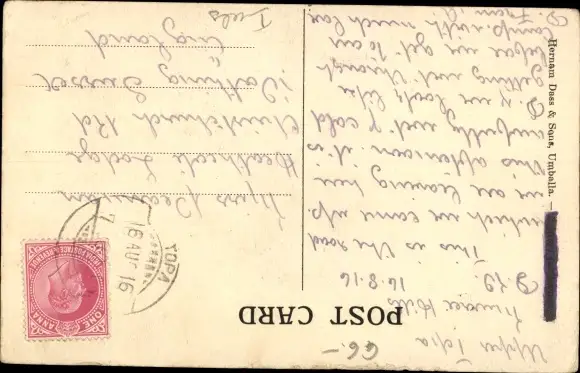 POST CARD
Upper Topa
Murree Hills
16.8.16
This is the road
which we came up.
we are leaving here
this afternoon it is
awfully wet & cold
& we look like
getting wet through
before we get to our
camp. with much love
From
Miss Pearman
Heathcote Lodge
Christchurch Rd
Worthing Sussex
England
Hernam Dass & Sons, Umballa.
TOPA
16 AUG 16
INDIA POSTAGE & REVENUE
ONE ANNA